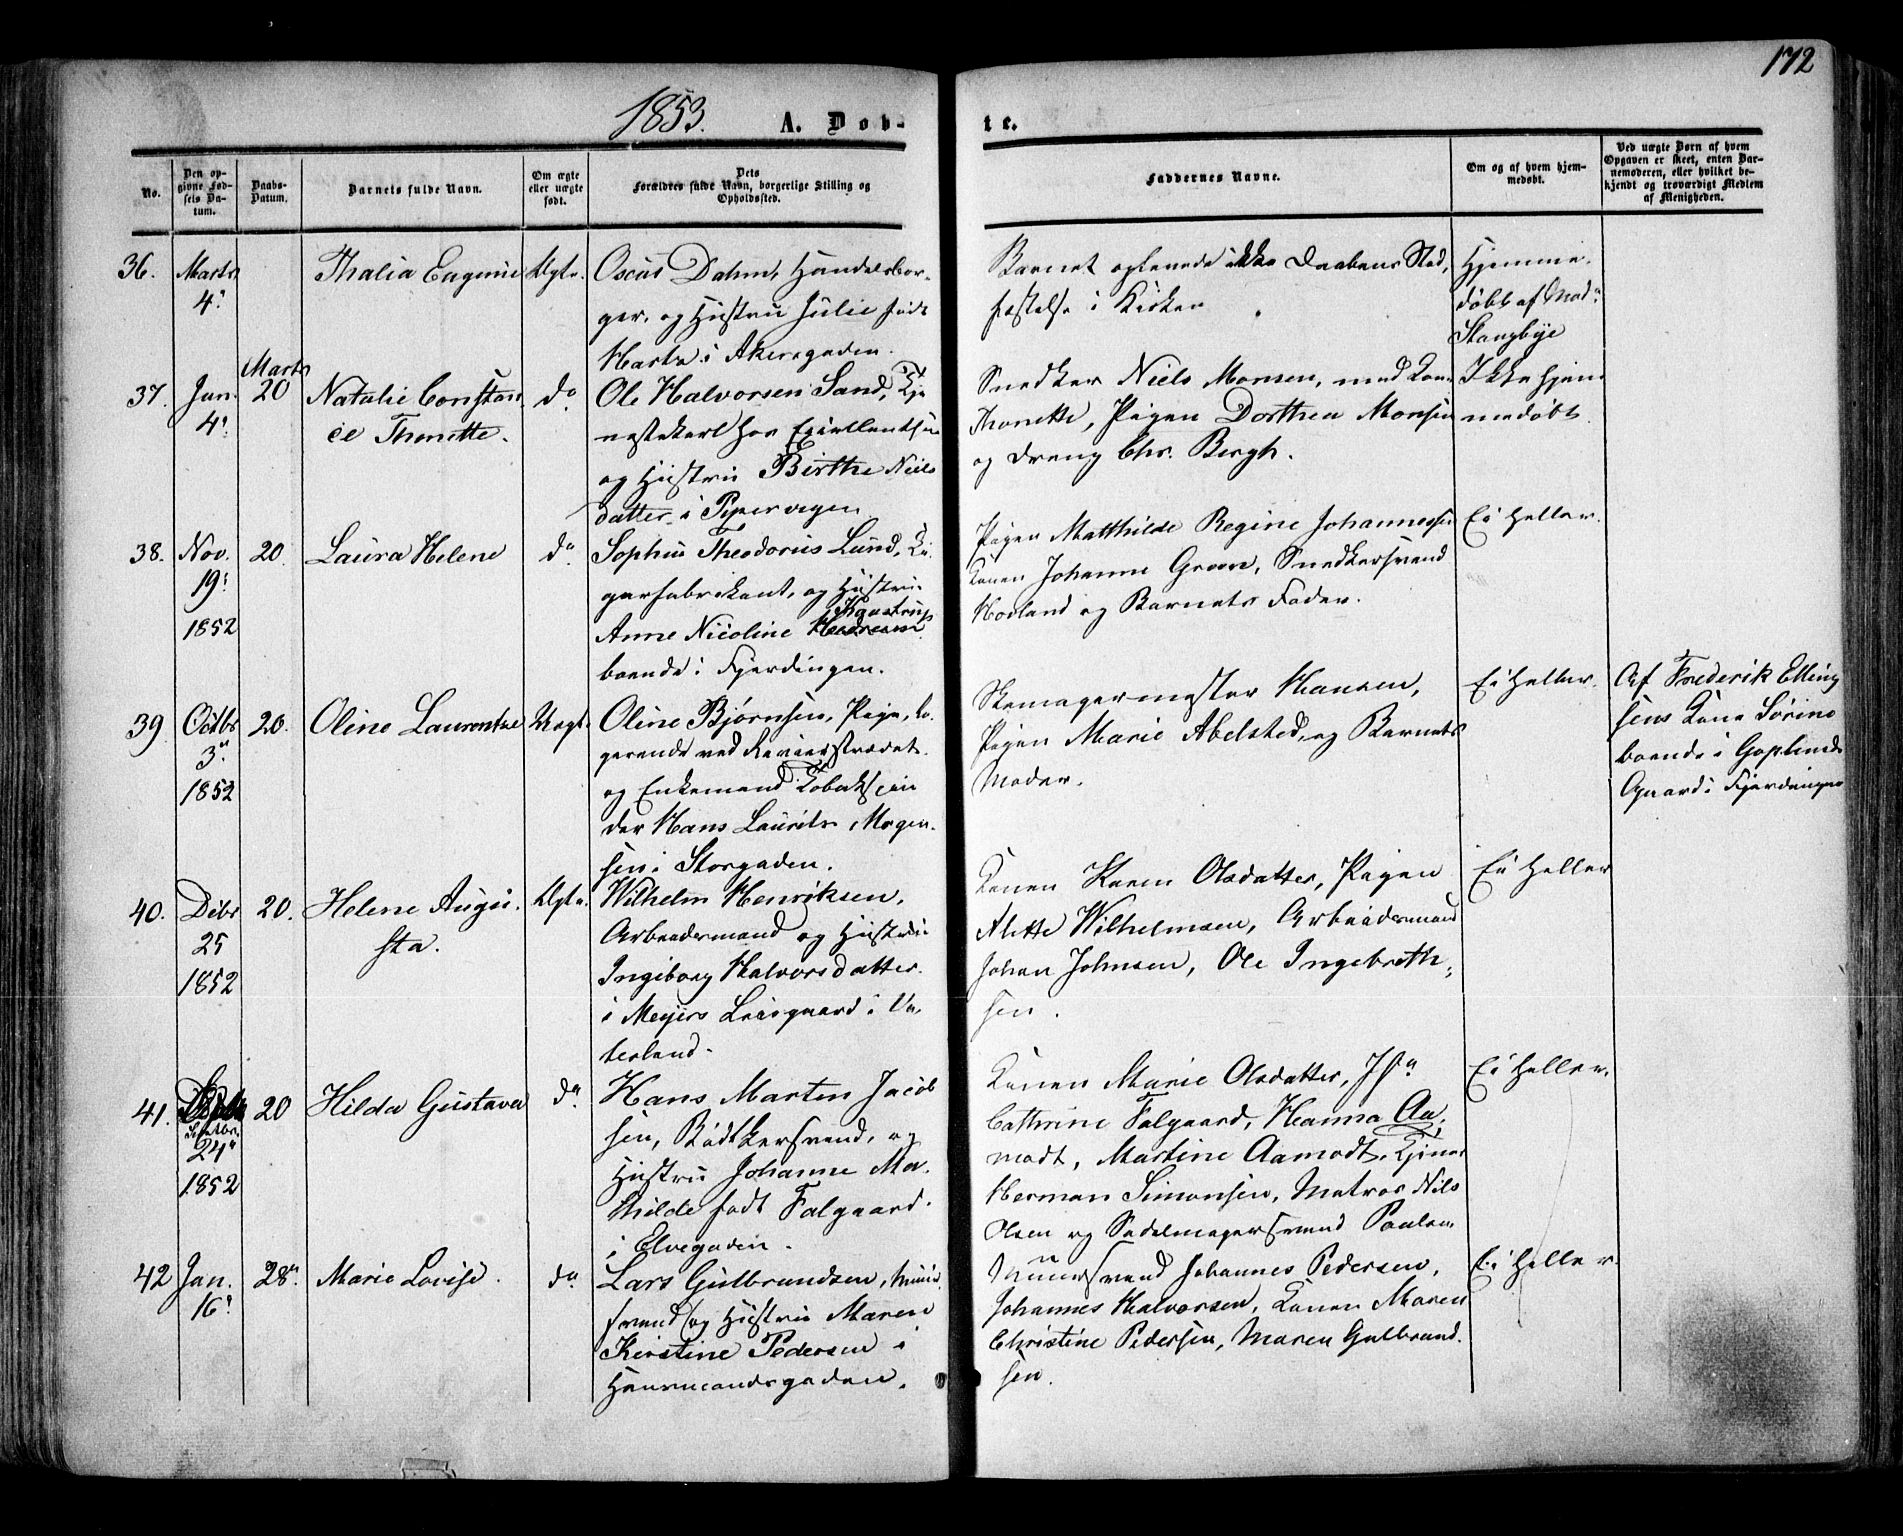 172
1853.
A. Døb-
te.
No.
Den op-
givne Fød-
sels Da-
tum.
Daabs-
Datum.
Barnets fulde Navn.
Om ægte
eller uægte
født.
Dets
Forældres fulde Navn, borgerlige Stilling og
Opholdssted.
Faddernes Navne.
Om og af hvem hjem-
medøbt.
Ved uægte Børn af hvem
Opgaven er skeet, enten Bar-
nemoderen, eller hvilket be-
kjendt og troværdigt Medlem
af Menigheden.
36.
Marts
4'
Thalia Eugenie
Ægte.
Oscar Dahm, Handelsbor-
ger, og Hustru Julie født
i Akersgaden.
Barnet oplevede ikke Daabens Stad-
fæstelse i Kirken
Hjemme-
døbt af Mad.
Stangbye
37.
Jan.
4'
Marts
20
Natalie Constan
ce Thonette.
do
Ole Halvorsen Sand, Tje
nestekarl hos
og Hustru Birthe Niels
datter i Pipervigen
Snedker Niels Monsen, med Kone
Thonette, Pigen Dorthea Monsen
og Dreng Chr. Bergh.
Ikke hjem
medøbt
38.
Nov.
19'
1852
20.
Laura Helene
do
Sophus Theodorus Lund, Ci-
garfabrikant, og Hustru
Anne Nicoline
boende i Fjerdingen.
Pigen Matthilde Regine Johannessen
Konen Johanne Green, Snedkersvend
Hovland og Barnets Fader.
Ei heller.
39.
Octbr
3"
1852
20.
Oline Laurentze
Uægt.
Oline Bjørnsen, Pige, lo-
gerende ved
og Enkemand Tobakspin
der Hans Laurits Mogen-
sen i Storgaden.
Skomagermester Hansen,
Pigen Marie Abelsted, og Barnets
Moder.
Ei heller.
Af Frederik Elling
sens Kone Sørine
boende i
Gaard i Fjerdingen
40.
Dcbr
25
1852
20.
Helene Augu-
sta.
Ægte.
Wilhelm Henriksen,
Arbeidsmand og Hustru
Ingeborg Halvorsdatter
i Meyers Løisgaard i Va-
terland.
Konen Karen Olsdatter, Pigen
Alette Wilhelmsen, Arbeidsmand
Johan Johnsen, Ole Ingebreth-
sen.
Ei heller
41.
Septbr.
24"
1852
20
Hilda Gustava
do
Hans Morten Jacob
sen, Bødtkersvend, og
Hustru Johanne Ma-
thilde født Falgaard
i Elvegaden.
Konen Marie Olsdatter, Jfr
Cathrine Falgaard, Hanna Aa-
modt, Martine Aamodt, Tjener
Herman Simonsen, Matros Nils
Olsen og Sadelmagersvend Paulsen
Ei heller.
42
Jan.
16'
28"
Marie Lovise.
do
Lars Gulbrandsen, Muur
svend, og Hustru Maren
Kirstine Pedersen i
Hausmandsgaden.
Muursvend Johannes Pedersen,
Johannes Halvorsen, Konen Maren
Christine Pedersen, Maren Gulbrand-
sen.
Ei heller.